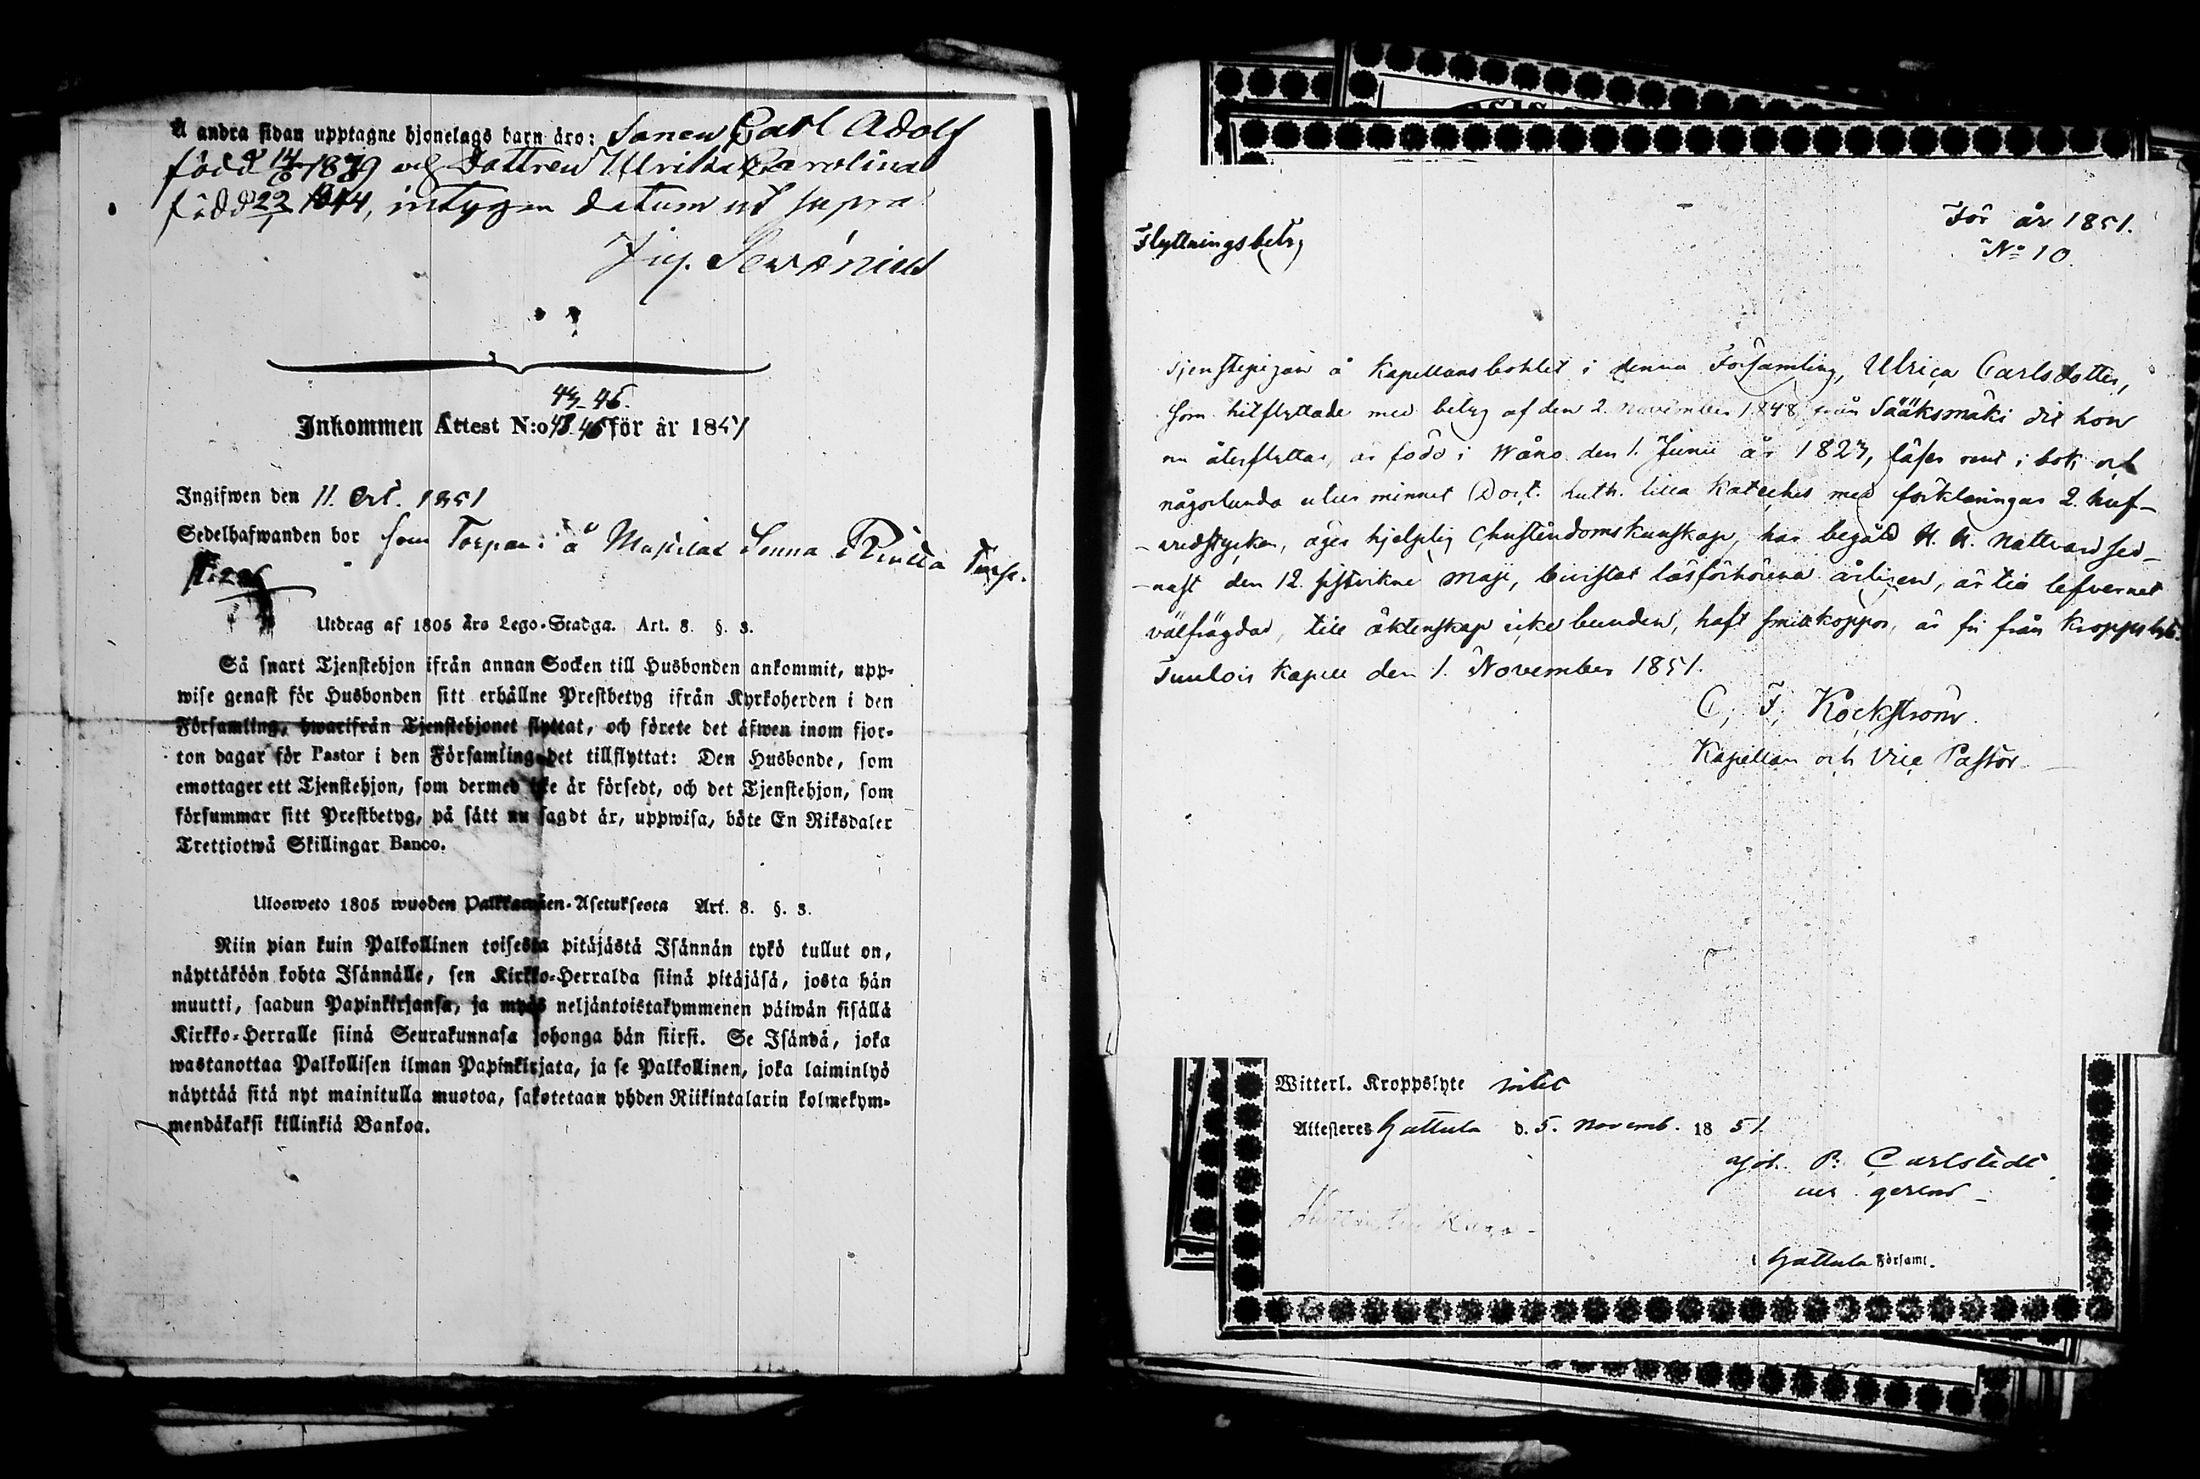 Å andra sidan upptagne hjonelags barn äro: Sonen Carl Adolf
född 14/6 1839 och Dottren Ulrika Carolina
född 22/1 1844, intygen datum ut supra
Inkommen Attest N:o 43. 46 för år 1851
44-46.
Ingifwen den 11. Oct. 1851
Sedelhafwanden bor som Torpare å
Utdrag af 1805 års Lego-Stadga. Art. 8. §. 3.
Så snart Tjenstehjon ifrån annan Socken till Husbonden ankommit, upp-
wise genast för Husbonden sitt erhållne Prestbetyg ifrån Kyrkoherden i den
Församling, hwarifrån Tjenstehjonet flyttat, och förete det äfwen inom fjor-
ton dagar för Pastor i den Församling det tillflyttat: Den Husbonde, som
emottager ett Tjenstehjon, som dermed icke är försedt, och det Tjenstehjon, som
försummar sitt Prestbetyg, på sätt nu sagdt är, uppwisa, böte En Riksdaler
Trettiotwå Skillingar Banco.
Ulosweto 1805 wuoden Palkkawäen-Asetuksesta Art. 8. §. 3.
Niin pian kuin Palkollinen toisesta pitäjästä Isännän tykö tullut on,
näyttäköön kohta Isännälle, sen Kirkko-Herralda siinä pitäjäsä, josta hän
muutti, saadun Papinkirjansa, ja myös neljäntoistakymmenen päiwän sisällä
Kirkko-Herralle siinä Seurakunnasa johonga hän siirsi. Se Isändä, joka
wastanottaa Palkollisen ilman Papinkirjata, ja se Palkollinen, joka laiminlyö
näyttää sitä nyt mainitulla muotoa, sakotetaan yhden Riikintalarin kolmekym-
mendäkaksi killinkiä Bankoa.
För år 1851.
Flyttningsbetyg
No 10.
Tjenstepigan å Kapellansbohlet i denna Församling, Ulrica Carlsdotter,
som hitflyttade med betyg af den 2. November 1848 från Sääksmäki dit hon
nu återflyttar, är född i Wåno den 1. Junii år 1827, läser rent i bok och
någorlunda utur minnet Doct. Luth. lilla Kateches med förklaringar 2. huf-
-vudstycken, äger hjelplig Christendomskunskap, har begått H. H. Nattvard sed-
-nast den 12. sistvikne Maji, bivistat läsförhören årligen, är till lefvernet
välfrägdad, till äktenskap icke bunden, haft smittkoppor, är fri från kroppslyte.
Tuulois Kapell den 1. November 1851.
C. F.Köckström.
Kapellan och Vice Pastor.
Witterl. Kroppslyte intet
Attesteres Hattula d. 5. Novemb. 1851.
Joh. P. Carlstedt
vices gerens
i Hattula Församl.